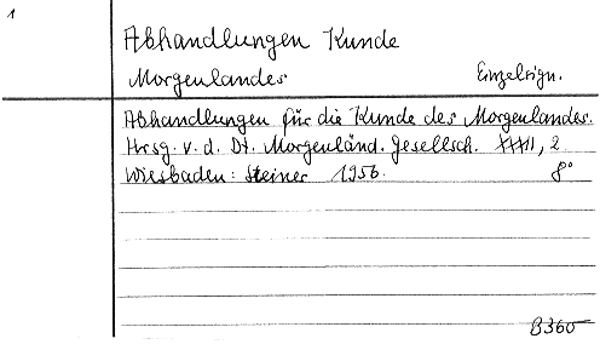 1
Abhandlungen Kunde
Morgenlandes Einzelsign.
Abhandlungen für die Kunde des Morgenlandes.
Hrsg. v. d. Dt. Morgenländ. Gesellsch. XXXII, 2.
Wiesbaden: Steiner 1956. 8°
B360